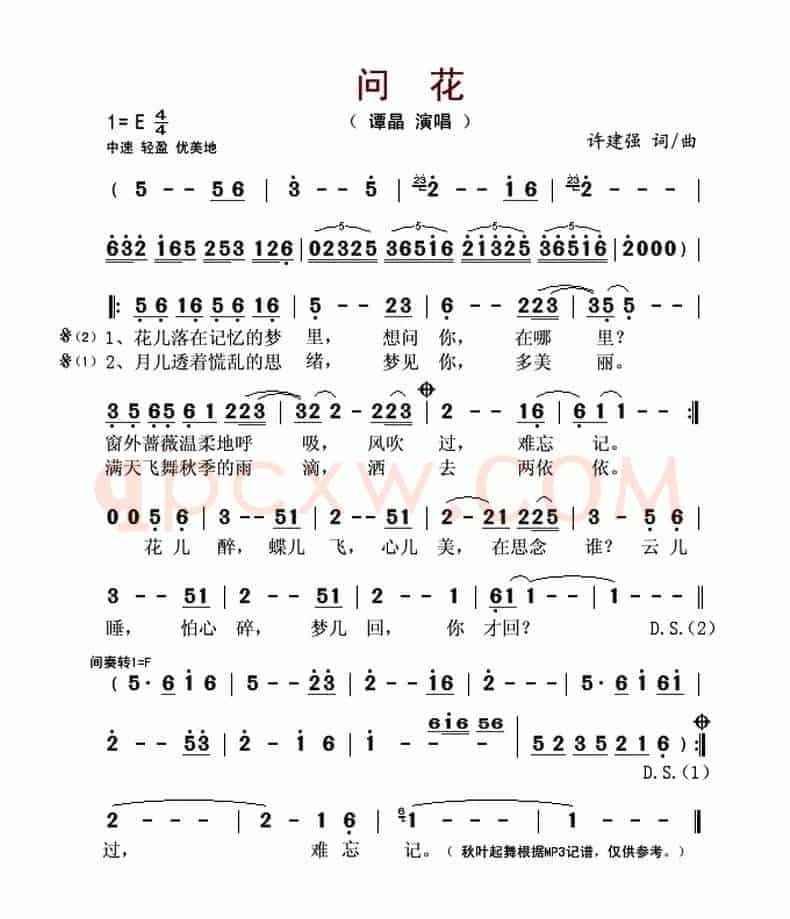 问 花
( 谭晶 演唱 )
1= E 4/4
中速 轻盈 优美地
许建强 词/曲
( 5 - - 5 6 | 3 - - 5 | 23 2 - - 1 6 | 23 2 - - - |
5 5 5 5
632 165 253 126 | 02325 36516 21325 36516 | 2000) |
|: 5 6 16 5 6 16 | 5 - - 23 | 6 - - 223 | 35 5 - - |
(2) 1、花儿落在记忆的梦 里， 想问 你， 在哪 里？
(1) 2、月儿透着慌乱的思 绪， 梦见 你， 多美 丽。
3 5 65 6 1 223 | 32 2 - 223 | 2 - - 16 | 6 1 1 - - :||
窗外蔷薇温柔地呼 吸， 风吹 过， 难忘 记。
满天飞舞秋季的雨 滴， 洒 去 两依 依。
qpcxw.com
0 0 5 6 | 3 - - 51 | 2 - - 51 | 2 - 21 225 | 3 - 5 6 |
花 儿 醉， 蝶儿 飞， 心儿 美， 在思念 谁？ 云儿
3 - - 51 | 2 - - 51 | 2 - - 1 | 61 1 - - | 1 - - - ||
睡， 怕心 碎， 梦儿 回， 你 才回？ D.S.(2)
间奏转1=F
( 5· 6 1 6 | 5 - - 23 | 2 - - 16 | 2 - - - | 5· 6 1 6 |
616 56
2 - - 53 | 2 - 1 6 | 1 - - - - - - | 5 2 3 5 2 1 6 ) :||
D.S.(1)
2 - - - | 2 - 1 6 | 6 1 - - - | 1 - - - |
过， 难 忘 记。 ( 秋叶起舞根据MP3记谱，仅供参考。)